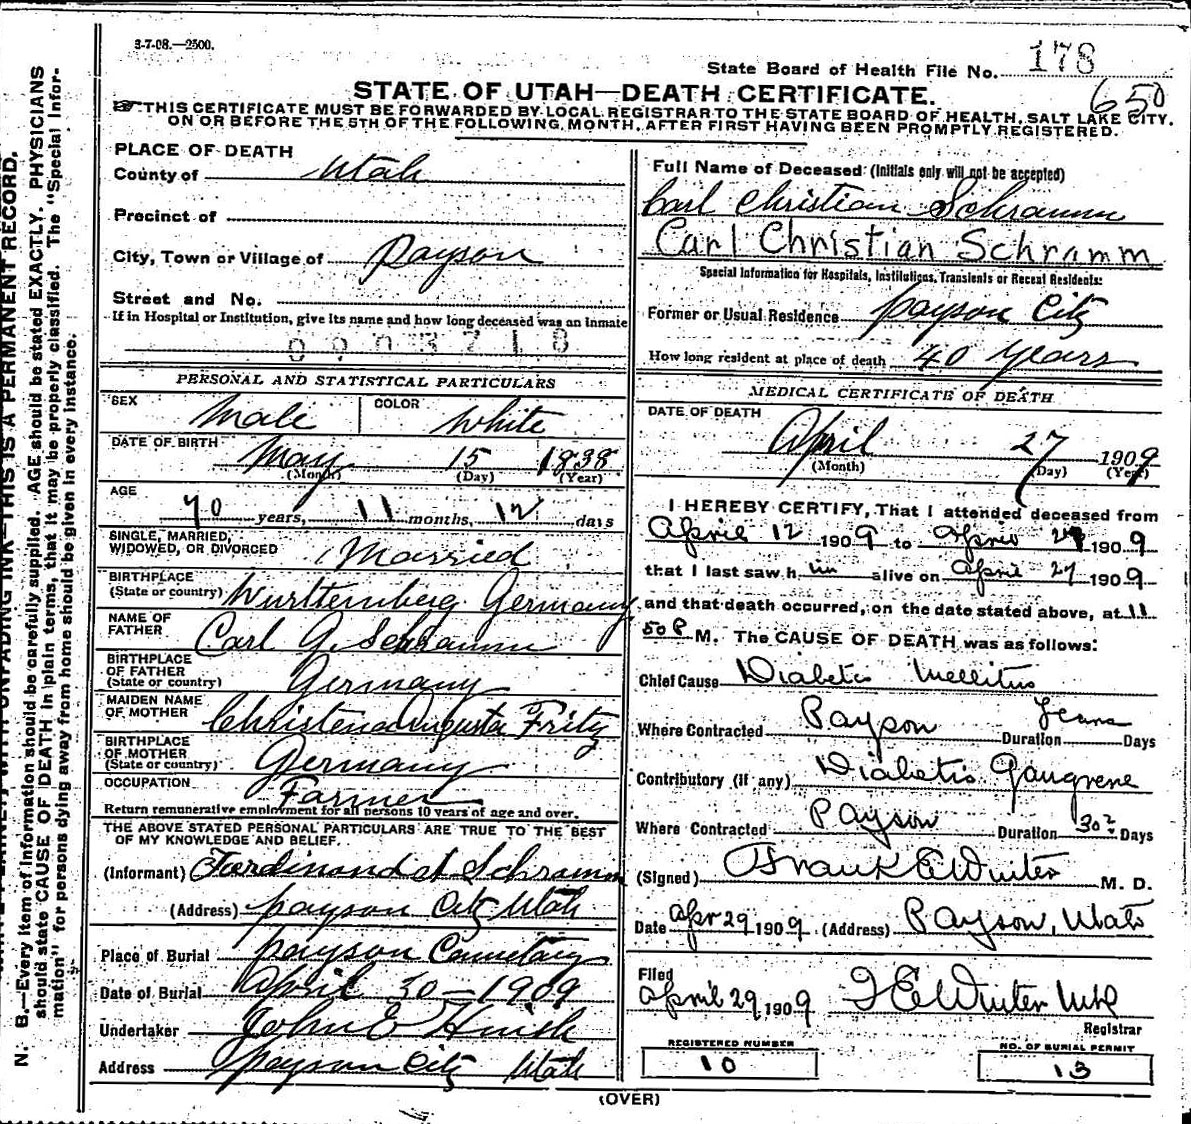 3-7-08.—2500.
State Board of Health File No. 178
650
STATE OF UTAH—DEATH CERTIFICATE.
THIS CERTIFICATE MUST BE FORWARDED BY LOCAL REGISTRAR TO THE STATE BOARD OF HEALTH, SALT LAKE CITY.
ON OR BEFORE THE 5TH OF THE FOLLOWING MONTH, AFTER FIRST HAVING BEEN PROMPTLY REGISTERED.
PLACE OF DEATH
County of Utah
Precinct of
City, Town or Village of Payson
Street and No.
If in Hospital or Institution, give its name and how long deceased was an inmate
PERSONAL AND STATISTICAL PARTICULARS
SEX Male COLOR White
DATE OF BIRTH
May 15 1838
(Month) (Day) (Year)
AGE
70 years, 11 months, 12 days
SINGLE, MARRIED,
WIDOWED, OR DIVORCED Married
BIRTHPLACE
(State or country) Wurttemberg Germany
NAME OF
FATHER Carl G. Schramm
BIRTHPLACE
OF FATHER
(State or country) Germany
MAIDEN NAME
OF MOTHER Christena Augusta Fritz
BIRTHPLACE
OF MOTHER
(State or country) Germany
OCCUPATION
Farmer
Return remunerative employment for all persons 10 years of age and over.
THE ABOVE STATED PERSONAL PARTICULARS ARE TRUE TO THE BEST
OF MY KNOWLEDGE AND BELIEF.
(Informant) Ferdinand A Schramm
(Address) Payson City Utah
Place of Burial Payson Cemetary
Date of Burial April 30—1909
Undertaker John E Huish
Address Payson City Utah
Full Name of Deceased (Initials only will not be accepted)
Carl Christian Schramm
Carl Christian Schramm
Special Information for Hospitals, Institutions, Transients or Recent Residents:
Former or Usual Residence Payson City
How long resident at place of death 40 years
MEDICAL CERTIFICATE OF DEATH
DATE OF DEATH
April 27 1909
(Month) (Day) (Year)
I HEREBY CERTIFY, That I attended deceased from
April 12 1909 to April 27 1909
that I last saw him alive on April 27 1909
and that death occurred, on the date stated above, at 11
50 P M. The CAUSE OF DEATH was as follows:
Chief Cause Diabetis Mellitus
Where Contracted Payson Duration Years Days
Contributory (if any) Diabetis Gangrene
Where Contracted Payson Duration 30 Days
(Signed) Frank E Winter M. D.
Date Apr 29 1909 (Address) Payson, Utah
Filed
April 29 1909 F E Winter MD
Registrar
REGISTERED NUMBER
10
NO. OF BURIAL PERMIT
13
(OVER)
N. B.—Every item of information should be carefully supplied. AGE should be stated EXACTLY. PHYSICIANS
should state CAUSE OF DEATH in plain terms, that it may be properly classified. The "Special Infor-
mation" for persons dying away from home should be given in every instance.
UNFADING INK—THIS IS A PERMANENT RECORD.